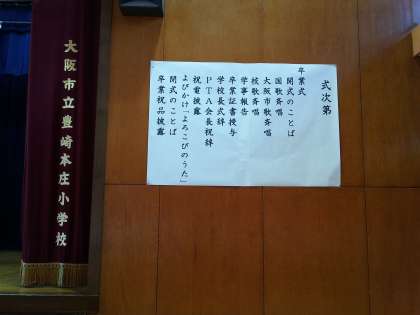 式次第
卒業式
開式のことば
国歌斉唱
大阪市歌斉唱
校歌斉唱
学事報告
卒業証書授与
学校長式辞
PTA会長祝辞
祝電披露
よびかけ「よろこびのうた」
閉式のことば
卒業祝品披露
大阪市立豊崎本庄小学校